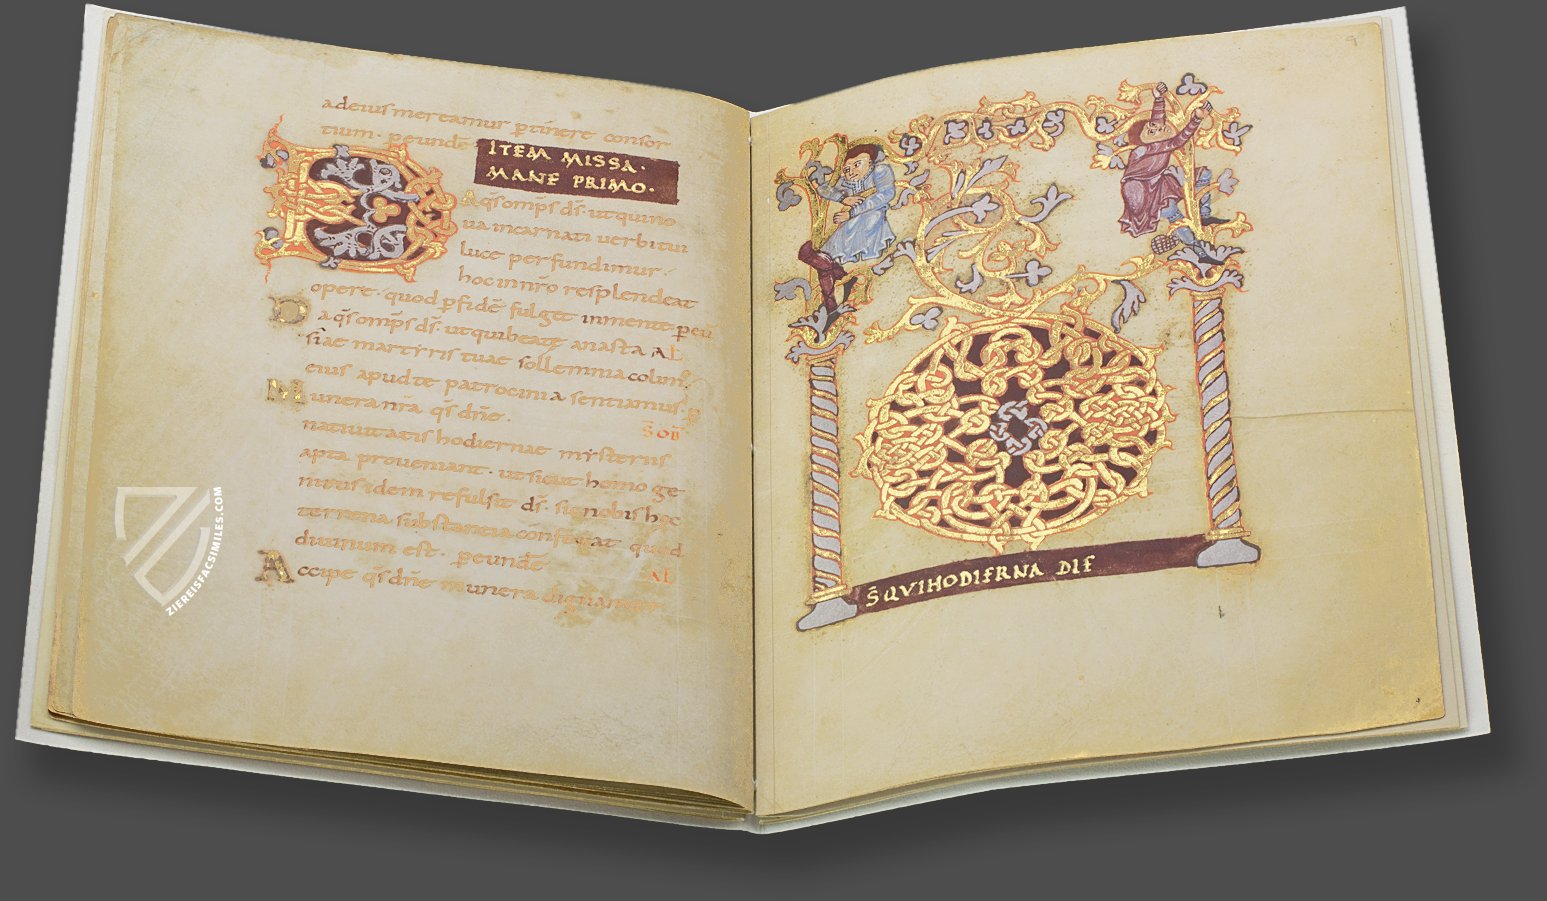 adeius mereamur ptinere consor
tium. peunde
ITEM MISSA.
MANE PRIMO.
Aqs omps ds. ut quino
ua incarnati uerbi tui
luce perfundimur.
hoc in nro resplendeat
opere. quod p fidē fulget in mente. peū
Da qs omps ds. ut qui beatę anasta AL
siae martyris tuae sollemnia colim;
eius apud te patrocinia sentiamus. p
Munera nra qs dne.
SOB
natiuitatis hodiernae mysteriis
apta proueniant. ut sicut homo ge
nitus idem refulsit ds. sic nobis hęc
terrena substantia conferat quod
diuinum est. peunde
AL
Accipe qs dne munera dignanter
ZIEREISFACSIMILES.COM
DS QVI HODIERNA DIE